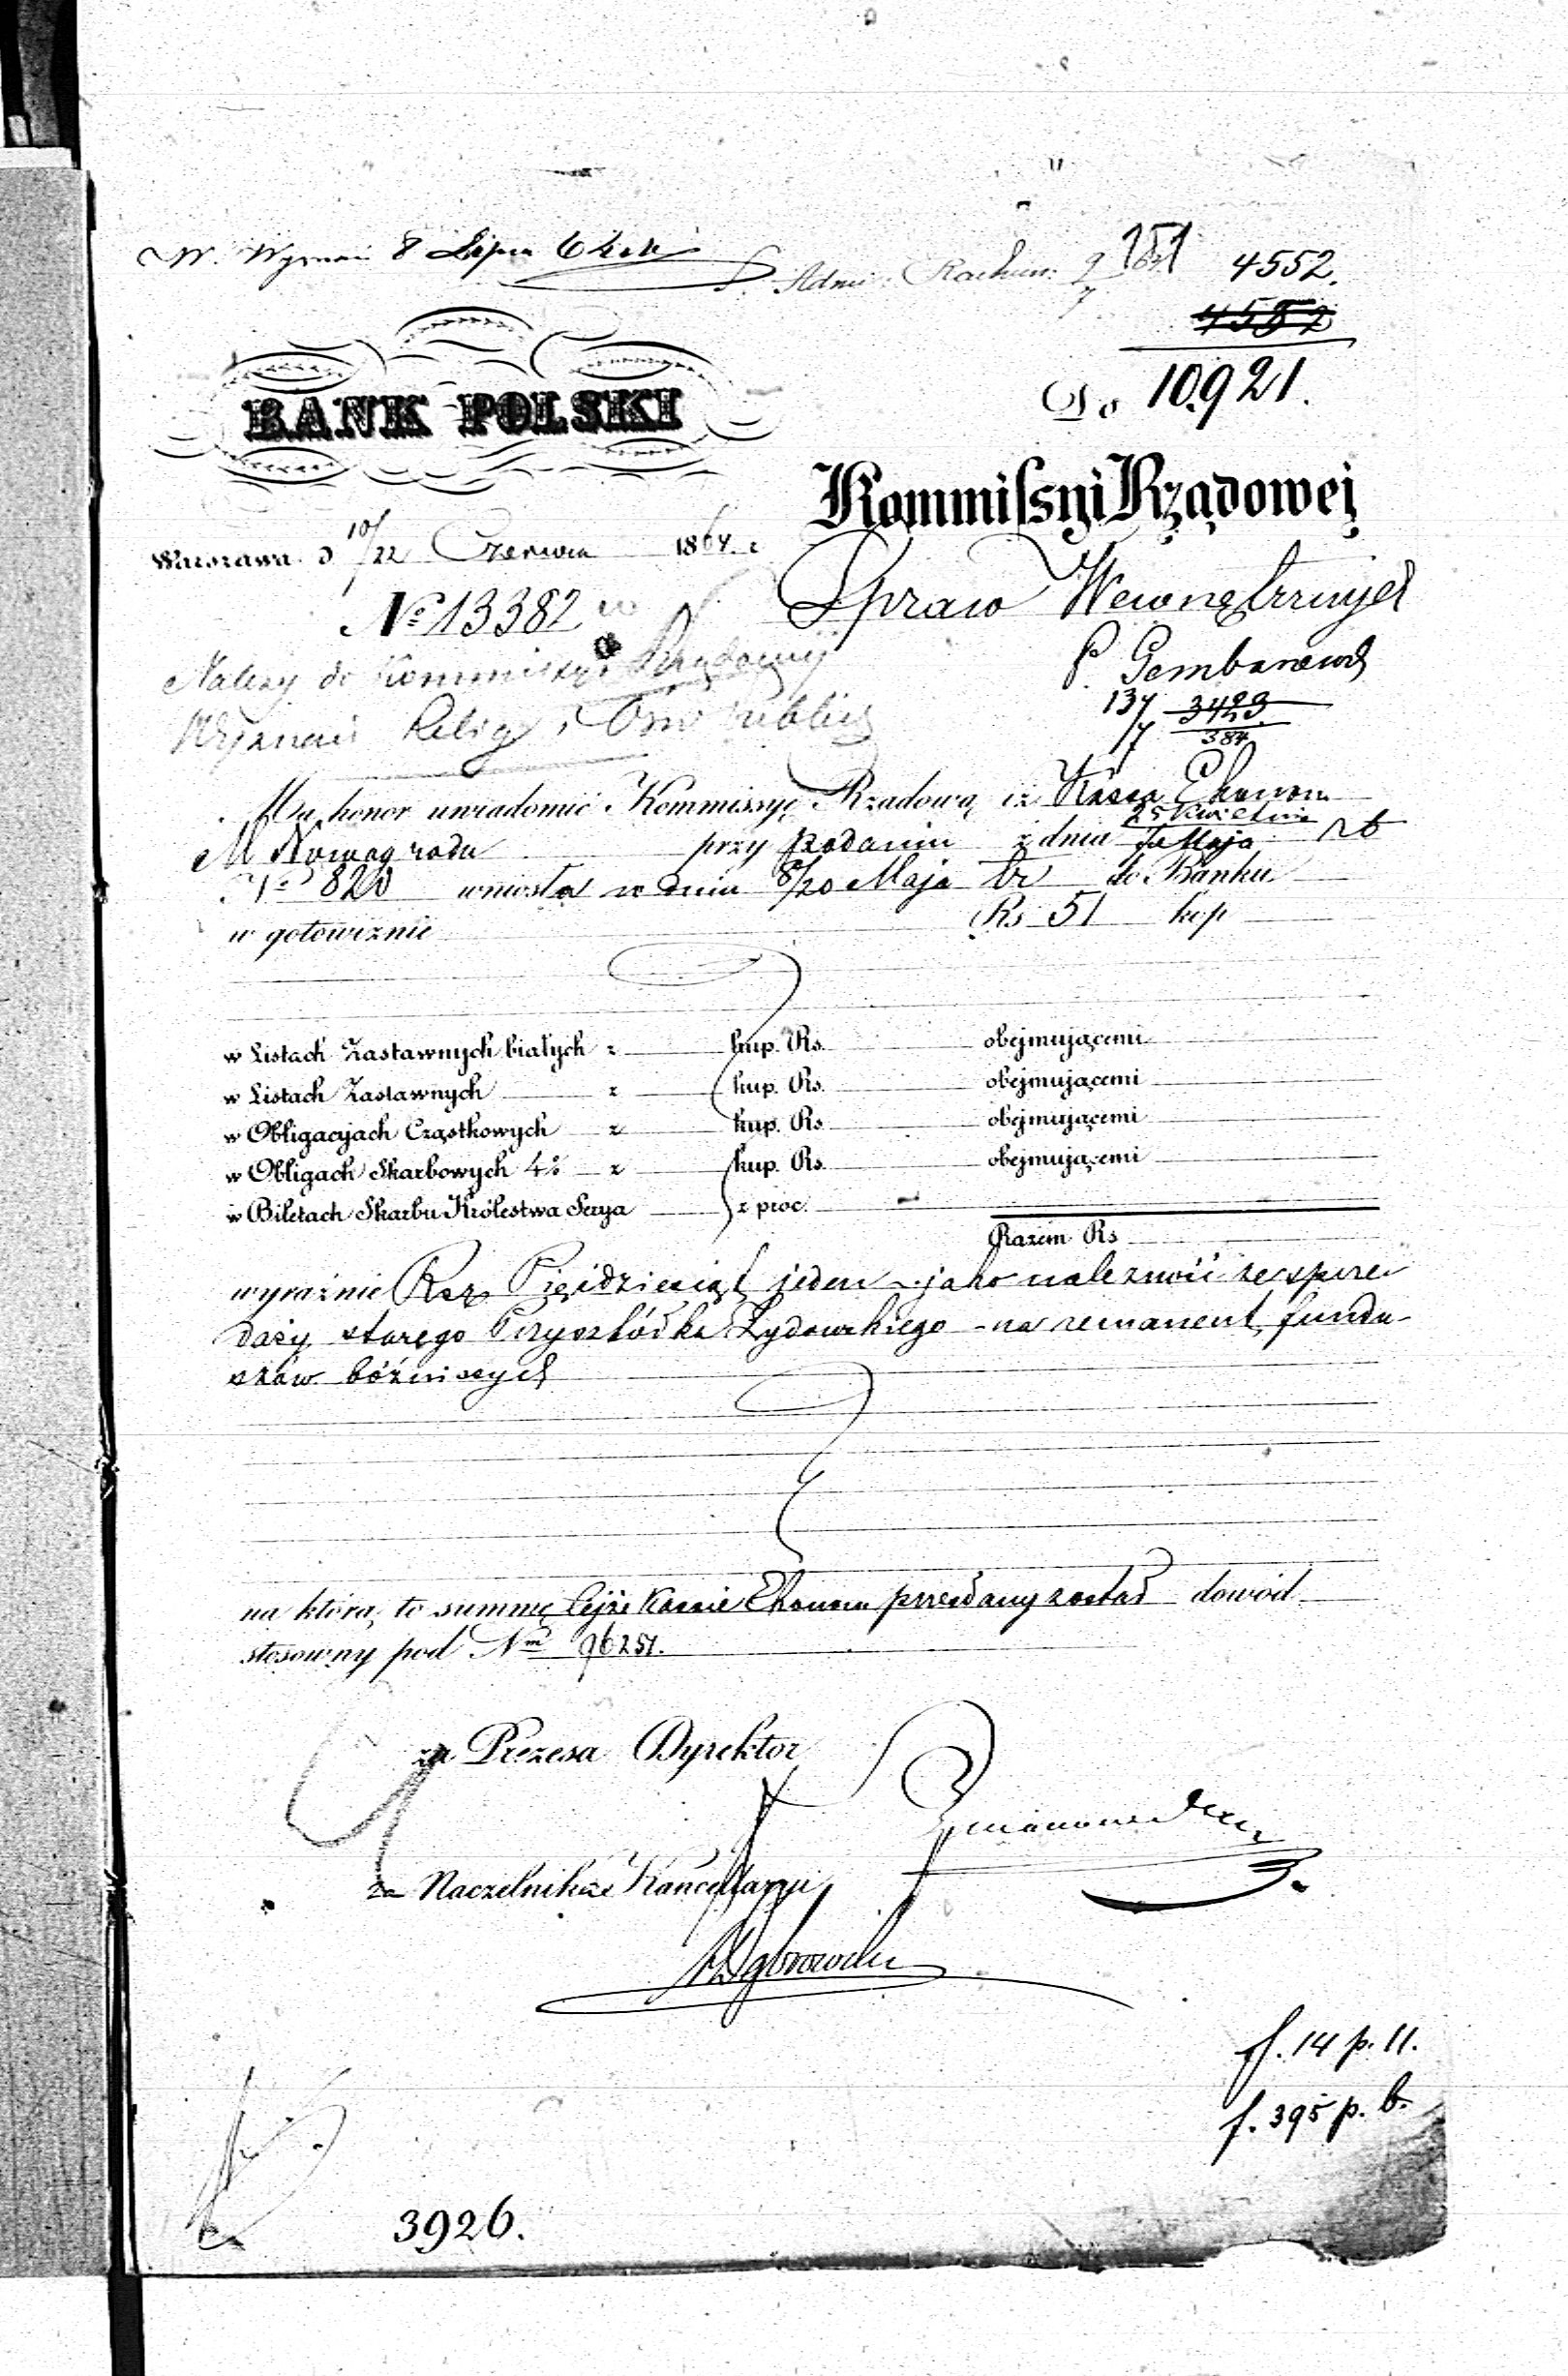 W. Wyznań 8 Lipca 64
Adm: Rachun: 9/7 4552.
4552
10921.
BANK POLSKI
Do
Kommissyi Rządowej
Warszawa d 10/22 Czerwca 1864 r
Spraw Wewnętrznych
№ 13382
Należy do Kommissyi Rządowej
Wyznań Relig i Ośw Publicz
P. Gembarzewski
137 3423
/7 384
Ma honor uwiadomić Kommissyę Rządową iż Kassa Ekonom
M Nowogrodu przy podaniu z dnia 25 Kwietnia / 7 Maja rb
№ 820 wniosła w dniu 8/20 Maja br do Banku
w gotowiźnie Rs 51 kop
w Listach Zastawnych białych z kup. Rs. obejmującemi
w Listach Zastawnych z kup. Rs. obejmującemi
w Obligacyjach Cząstkowych z kup. Rs. obejmującemi
w Obligach Skarbowych 4% z kup. Rs. obejmującemi
w Biletach Skarbu Królestwa Serya z proc.
Razem Rs
wyraźnie Rsr Pięćdziesiąt jeden jako należność ze sprze
daży starego Przysztódka Żydowskiego na remanent fundu-
szów bóźniczych
na którą to summę tejże Kassie Ekonom przesłany został dowód
stosowny pod Nm 96251.
za Prezesa Dyrektor
za Naczelnika Kancellaryi
Dąbrowski
f. 14 p. 11.
f. 395 p. b.
3926.